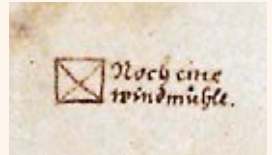 Noch eine
windmühle.